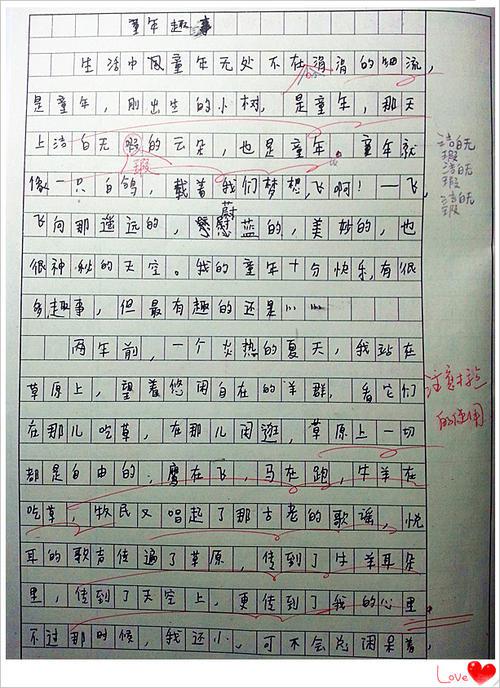 童年趣事
生活中的童年无处不在,涓涓的细流,
是童年,刚出生的小树,是童年,那天
上洁白无暇的云朵,也是童年。童年就
瑕
像一只白鸽,载着我们梦想,飞啊!一飞,
蔚
飞向那遥远的,慰蓝的,美妙的,也
很神秘的天空。我的童年十分快乐,有很
多趣事,但最有趣的还是……
两年前,一个炎热的夏天,我站在
草原上,望着悠闲自在的羊群,看它们
在那儿吃草,在那儿闲逛,草原上一切
都是自由的:鹰在飞,马在跑,牛羊在
吃草,牧民又唱起了那古老的歌谣,悦
耳的歌声传遍了草原,传到了牛羊耳朵
里,传到了天空上,更传到了我的心里。
不过那时候,我还小。可不会总闲呆着,
洁白无
瑕
洁白无
瑕
洁白无
瑕
注意标点
的使用
Love